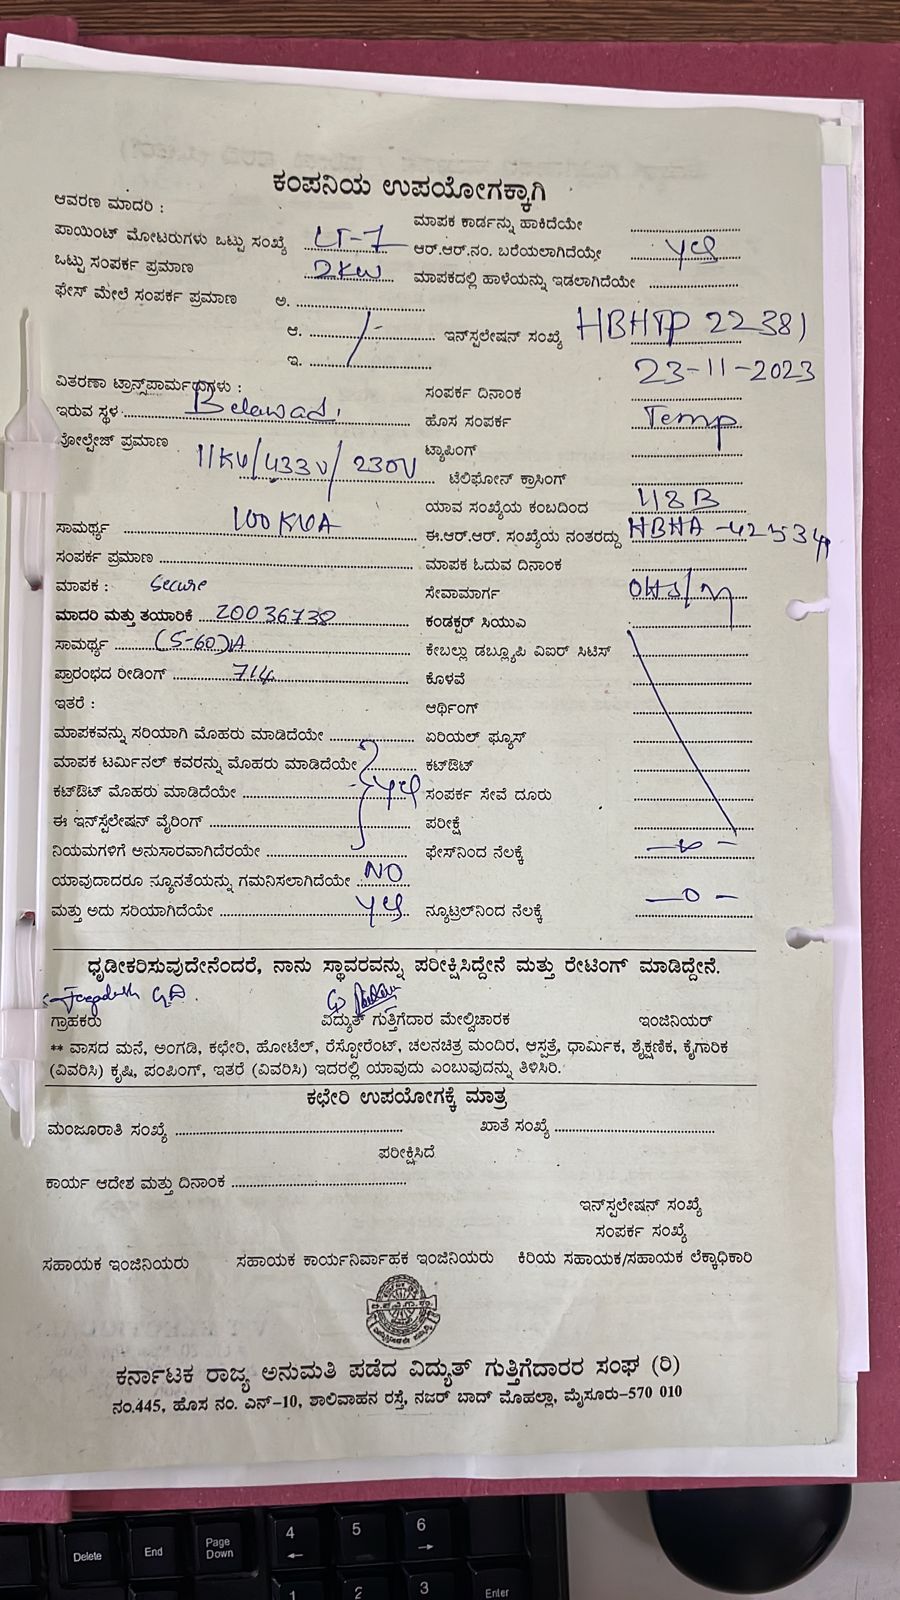 ಕಂಪನಿಯ ಉಪಯೋಗಕ್ಕಾಗಿ
ಆವರಣ ಮಾದರಿ :
ಮಾಪಕ ಕಾರ್ಡನ್ನು ಹಾಕಿದೆಯೇ
ಪಾಯಿಂಟ್ ಮೋಟರುಗಳು ಒಟ್ಟು ಸಂಖ್ಯೆ LT-7 ಆರ್.ಆರ್.ನಂ. ಬರೆಯಲಾಗಿದೆಯೇ yes
ಒಟ್ಟು ಸಂಪರ್ಕ ಪ್ರಮಾಣ 2KW ಮಾಪಕದಲ್ಲಿ ಹಾಳೆಯನ್ನು ಇಡಲಾಗಿದೆಯೇ
ಫೇಸ್ ಮೇಲೆ ಸಂಪರ್ಕ ಪ್ರಮಾಣ ಅ.
ಆ. ಇನ್‌ಸ್ಪಲೇಷನ್ ಸಂಖ್ಯೆ HBHTP 22381
ಇ. 23-11-2023
ವಿತರಣಾ ಟ್ರಾನ್ಸ್‌ಪಾರ್ಮರುಗಳು : ಸಂಪರ್ಕ ದಿನಾಂಕ
ಇರುವ ಸ್ಥಳ Belawadi ಹೊಸ ಸಂಪರ್ಕ Temp
ವೋಲ್ಟೇಜ್ ಪ್ರಮಾಣ 11KV/433V/230V ಟ್ಯಾಪಿಂಗ್
ಟೆಲಿಫೋನ್ ಕ್ರಾಸಿಂಗ್
ಯಾವ ಸಂಖ್ಯೆಯ ಕಂಬದಿಂದ
ಸಾಮರ್ಥ್ಯ 100KVA ಈ.ಆರ್.ಆರ್. ಸಂಖ್ಯೆಯ ನಂತರದ್ದು
ಸಂಪರ್ಕ ಪ್ರಮಾಣ ಮಾಪಕ ಓದುವ ದಿನಾಂಕ
ಮಾಪಕ : Secure ಸೇವಾಮಾರ್ಗ
ಮಾದರಿ ಮತ್ತು ತಯಾರಿಕೆ 20036738 ಕಂಡಕ್ಟರ್ ಸಿಯುಎ
ಸಾಮರ್ಥ್ಯ (5-60)A ಕೇಬಲ್ಲು ಡಬ್ಲ್ಯೂಪಿ ವಿಐರ್ ಸಿಟಿಸ್
ಪ್ರಾರಂಭದ ರೀಡಿಂಗ್ 714 ಕೊಳವೆ
ಇತರೆ : ಆರ್ಥಿಂಗ್
ಮಾಪಕವನ್ನು ಸರಿಯಾಗಿ ಮೊಹರು ಮಾಡಿದೆಯೇ ಏರಿಯಲ್ ಫ್ಯೂಸ್
ಮಾಪಕ ಟರ್ಮಿನಲ್ ಕವರನ್ನು ಮೊಹರು ಮಾಡಿದೆಯೇ ಕಟ್‌ಔಟ್
ಕಟ್‌ಔಟ್ ಮೊಹರು ಮಾಡಿದೆಯೇ yes ಸಂಪರ್ಕ ಸೇವೆ ದೂರು
ಈ ಇನ್‌ಸ್ಪಲೇಷನ್ ವೈರಿಂಗ್ ಪರೀಕ್ಷೆ
ನಿಯಮಗಳಿಗೆ ಅನುಸಾರವಾಗಿದೆರಯೇ ಫೇಸ್‌ನಿಂದ ನೆಲಕ್ಕೆ
ಯಾವುದಾದರೂ ನ್ಯೂನತೆಯನ್ನು ಗಮನಿಸಲಾಗಿದೆಯೇ NO
ಮತ್ತು ಅದು ಸರಿಯಾಗಿದೆಯೇ yes ನ್ಯೂಟ್ರಲ್‌ನಿಂದ ನೆಲಕ್ಕೆ —0—
ಧೃಡೀಕರಿಸುವುದೇನೆಂದರೆ, ನಾನು ಸ್ಥಾವರವನ್ನು ಪರೀಕ್ಷಿಸಿದ್ದೇನೆ ಮತ್ತು ರೇಟಿಂಗ್ ಮಾಡಿದ್ದೇನೆ.
ಗ್ರಾಹಕರು ವಿದ್ಯುತ್ ಗುತ್ತಿಗೆದಾರ ಮೇಲ್ವಿಚಾರಕ ಇಂಜಿನಿಯರ್
** ವಾಸದ ಮನೆ, ಅಂಗಡಿ, ಕಛೇರಿ, ಹೋಟೆಲ್, ರೆಸ್ಟೋರೆಂಟ್, ಚಲನಚಿತ್ರ ಮಂದಿರ, ಆಸ್ಪತ್ರೆ, ಧಾರ್ಮಿಕ, ಶೈಕ್ಷಣಿಕ, ಕೈಗಾರಿಕೆ
(ವಿವರಿಸಿ) ಕೃಷಿ, ಪಂಪಿಂಗ್, ಇತರೆ (ವಿವರಿಸಿ) ಇದರಲ್ಲಿ ಯಾವುದು ಎಂಬುವುದನ್ನು ತಿಳಿಸಿರಿ.
ಕಛೇರಿ ಉಪಯೋಗಕ್ಕೆ ಮಾತ್ರ
ಮಂಜೂರಾತಿ ಸಂಖ್ಯೆ ಖಾತೆ ಸಂಖ್ಯೆ
ಪರೀಕ್ಷಿಸಿದೆ
ಕಾರ್ಯ ಆದೇಶ ಮತ್ತು ದಿನಾಂಕ
ಇನ್‌ಸ್ಪಲೇಷನ್ ಸಂಖ್ಯೆ
ಸಂಪರ್ಕ ಸಂಖ್ಯೆ
ಸಹಾಯಕ ಇಂಜಿನಿಯರು ಸಹಾಯಕ ಕಾರ್ಯನಿರ್ವಾಹಕ ಇಂಜಿನಿಯರು ಕಿರಿಯ ಸಹಾಯಕ/ಸಹಾಯಕ ಲೆಕ್ಕಾಧಿಕಾರಿ
ಕರ್ನಾಟಕ ರಾಜ್ಯ ಅನುಮತಿ ಪಡೆದ ವಿದ್ಯುತ್ ಗುತ್ತಿಗೆದಾರರ ಸಂಘ (ರಿ)
ನಂ.445, ಹೊಸ ನಂ. ಎನ್-10, ಶಾಲಿವಾಹನ ರಸ್ತೆ, ನಜರ್ ಬಾದ್ ಮೊಹಲ್ಲಾ, ಮೈಸೂರು-570 010
Delete End Page Down 4 5 6
1 2 3 Enter